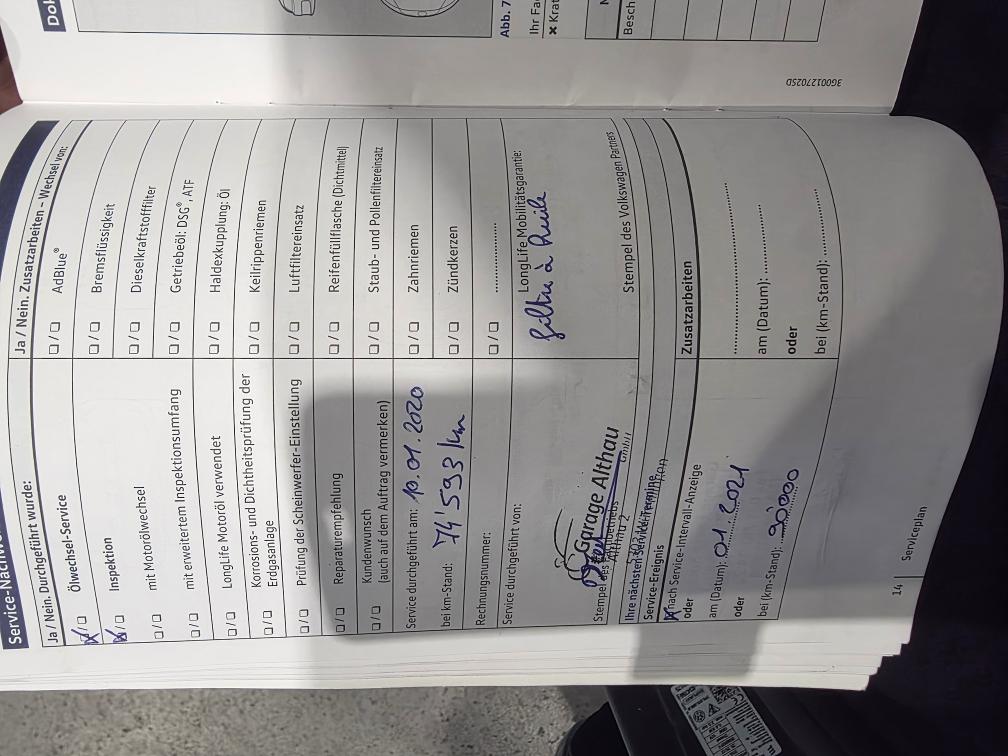 Service-Nachw
Ja / Nein. Durchgeführt wurde:
☒ / ☐ Ölwechsel-Service
☒ / ☐ Inspektion
☐ / ☐ mit Motorölwechsel
☐ / ☐ mit erweitertem Inspektionsumfang
☐ / ☐ LongLife Motoröl verwendet
☐ / ☐ Korrosions- und Dichtheitsprüfung der
Erdgasanlage
☐ / ☐ Prüfung der Scheinwerfer-Einstellung
☐ / ☐ Reparaturempfehlung
☐ / ☐ Kundenwunsch
(auch auf dem Auftrag vermerken)
Service durchgeführt am: 10.01.2020
bei km-Stand: 74'593 km
Rechnungsnummer:
Service durchgeführt von:
Garage Althau
GmbH
Stempel des
Ihre nächsten Service-Termine
Service-Ereignis
☒ nach Service-Intervall-Anzeige
oder
am (Datum): 01 2021
oder
bei (km-Stand): 90000
Ja / Nein. Zusatzarbeiten – Wechsel von:
☐ / ☐ AdBlue®
☐ / ☐ Bremsflüssigkeit
☐ / ☐ Dieselkraftstofffilter
☐ / ☐ Getriebeöl: DSG®, ATF
☐ / ☐ Haldexkupplung: Öl
☐ / ☐ Keilrippenriemen
☐ / ☐ Luftfiltereinsatz
☐ / ☐ Reifenfüllflasche (Dichtmittel)
☐ / ☐ Staub- und Pollenfiltereinsatz
☐ / ☐ Zahnriemen
☐ / ☐ Zündkerzen
☐ / ☐ ..................
LongLife Mobilitätsgarantie:
filtre à huile
Stempel des Volkswagen Partners
Zusatzarbeiten
am (Datum):
oder
bei (km-Stand):
14 Serviceplan
Abb. 7
Ihr Fa
× Krat
Besch
3G0012702SD